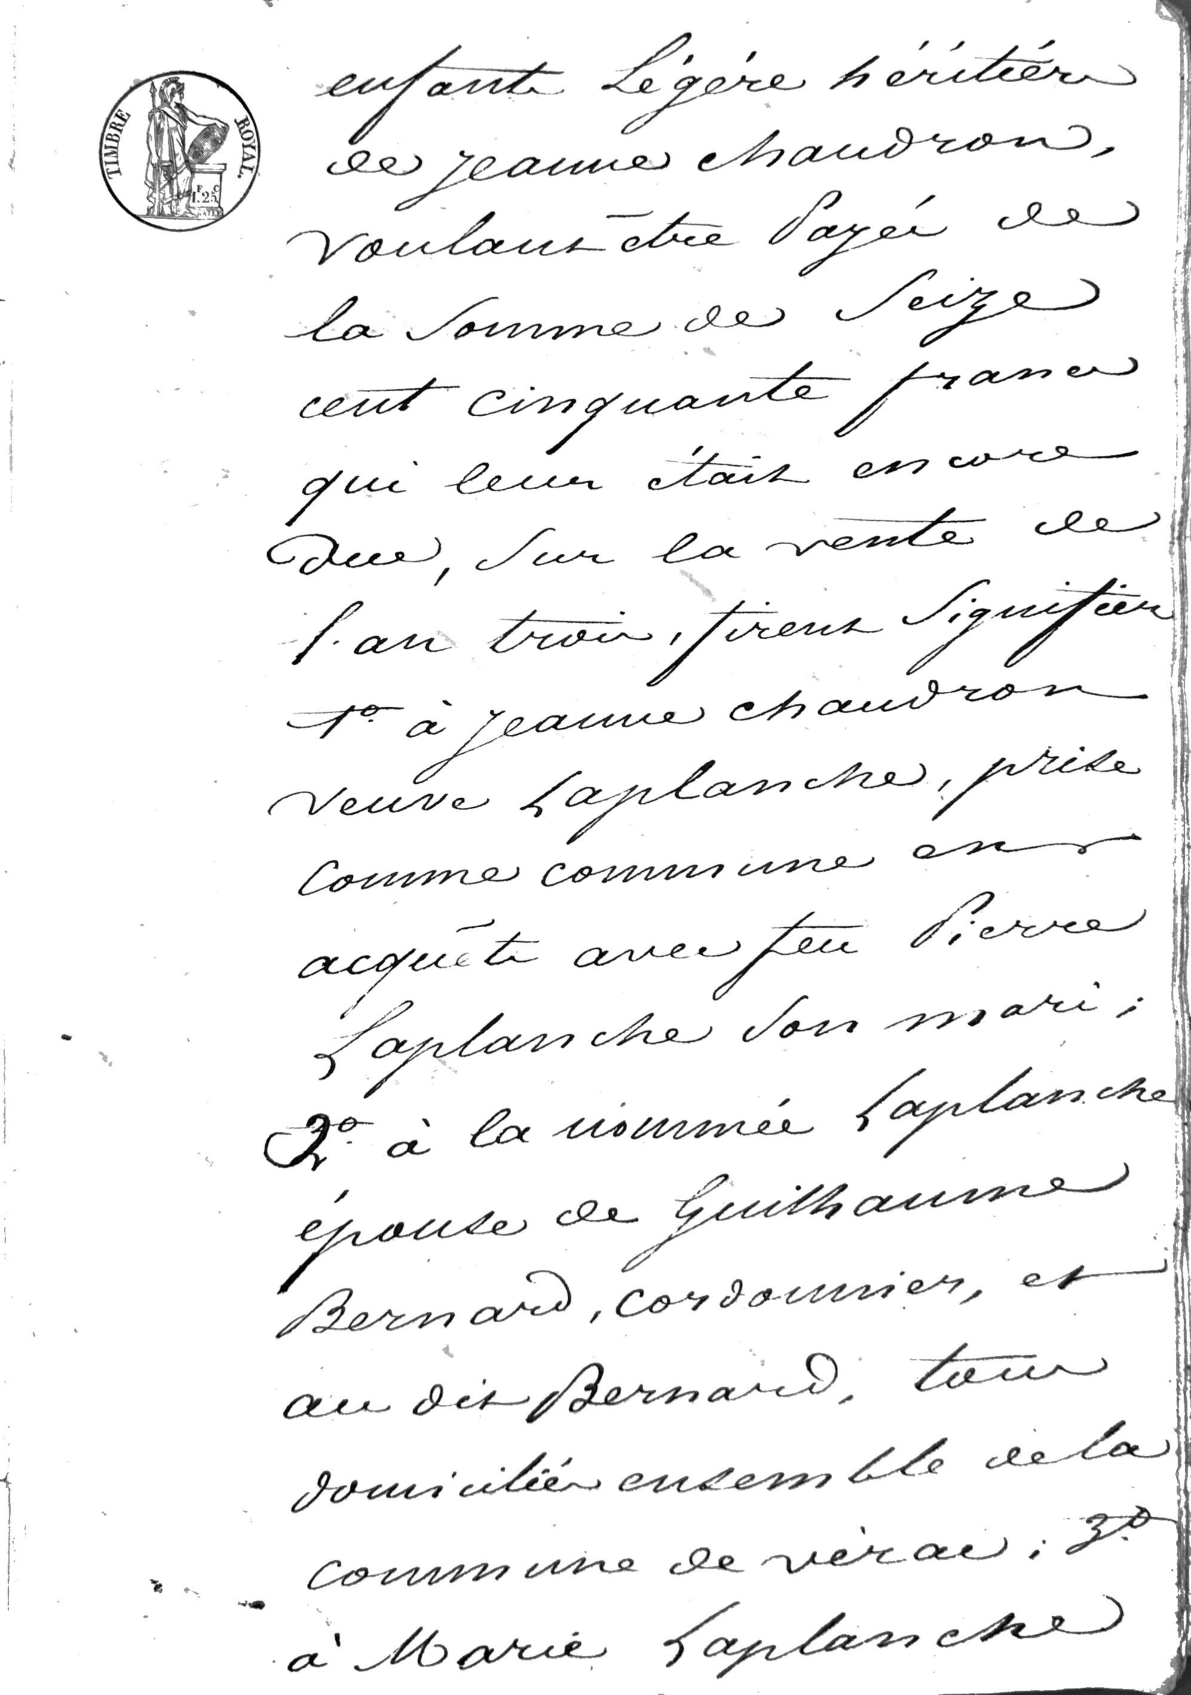 TIMBRE ROYAL.
F C
1.25
enfants Légére héritiérs
de jeanne chaudron,
voulant être Payés de
la Somme de Seize
cent cinquante francs
qui leur était encore
due, Sur la vente de
l'an trois, firent Signifier
1º. à jeanne chaudron
veuve Laplanche, prise
comme commune en
acquêts avec feu Pierre
Laplanche Son mari;
2º. à la nommée Laplanche
épouse de Guilhaume
Bernard, cordonnier, et
au dit Bernard, tous
domiciliés ensemble de la
commune de vérac; 3º.
à Marie Laplanche